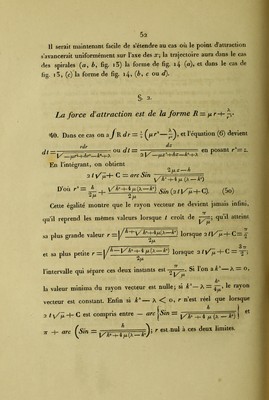 52
Il serait maintenant facile de s'étendre au cas où le point d'attraction
s'avancerait uniformément sur l'axe des x; la trajectoire aura dans le cas
des spirales (a, b, fig. 13) la forme de fig. 14 (a), et dans le cas de
fig. 13, (c) la forme de fig. 14, (b, c ou d).
§ 2.
La force d'attraction est de la forme R = μ r + λ/r³.
40. Dans ce cas on a ∫ R dr = ½ (μr² − λ/r²), et l'équation (6) devient
dt = rdr/√(−μr⁴+hr²−k²+λ) ou dt = dz/2√(−μz²+hz−k²+λ) en posant r² = z.
En l'intégrant, on obtient
2 t √μ + C = arc Sin (2μz−h)/√(h²+4μ(λ−k²))
D'où r² = h/2μ + √(h²+4μ(λ−k²))/2μ Sin (2t√μ+C). (50)
Cette égalité montre que le rayon vecteur ne devient jamais infini,
qu'il reprend les mêmes valeurs lorsque t croît de π/√μ; qu'il atteint
sa plus grande valeur r = √((h+√(h²+4μ(λ−k²)))/2μ) lorsque 2t√μ+C = π/2
et sa plus petite r = √((h−√(h²+4μ(λ−k²)))/2μ) lorsque 2t√μ+C = 3π/2;
l'intervalle qui sépare ces deux instants est π/2√μ. Si l'on a k² − λ = 0,
la valeur minima du rayon vecteur est nulle; si k² − λ = h²/4μ, le rayon
vecteur est constant. Enfin si k² − λ < 0, r n'est réel que lorsque
2 t √μ + C est compris entre − arc (Sin = h/√(h²+4μ(λ−k²))) et
π + arc (Sin = h/√(h²+4μ(λ−k²))); r est nul à ces deux limites.